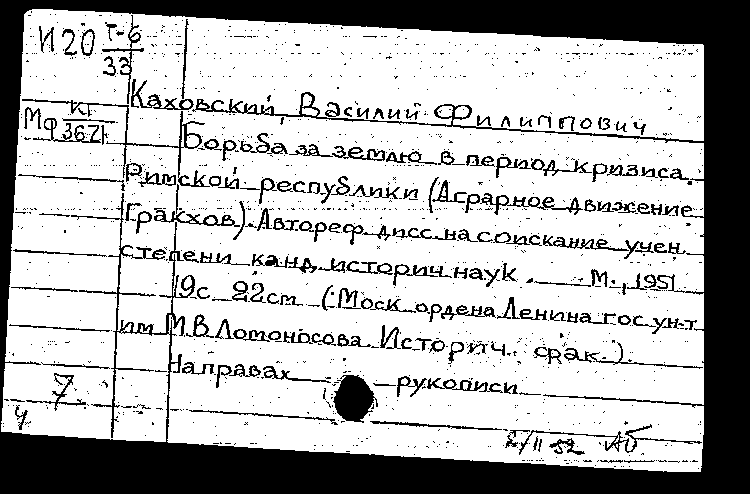 И20 Т-6
33
Каховский, Василий Филиппович
Мф КГ
3671
Борьба за землю в период кризиса
Римской республики (Аграрное движение
Гракхов). Автореф. дисс. на соискание учен.
степени канд. историч наук. М., 1951
19с. 22см (Моск ордена Ленина гос ун-т
им М.В Ломоносова. Историч. фак.).
На правах рукописи
7
4
2/II 52 АБ